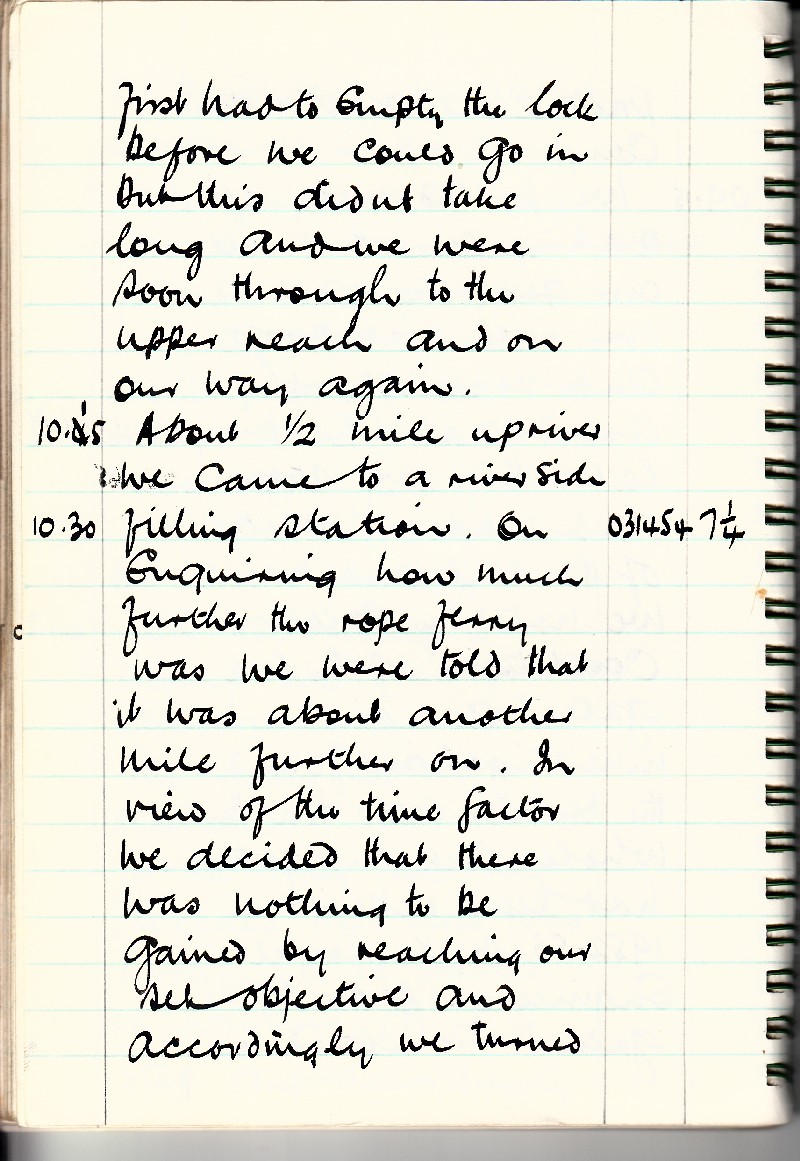 first had to Empty the lock
before we could go in
but this didnt take
long and we were
soon through to the
upper reach and on
our way again.
10.15 About 1/2 mile upriver
we came to a river side
10.30 filling station. On 031454 7 1/4
Enquiring how much
further the rope ferry
was we were told that
it was about another
mile further on. In
view of the time factor
we decided that there
was nothing to be
gained by reaching our
set objective and
accordingly we turned